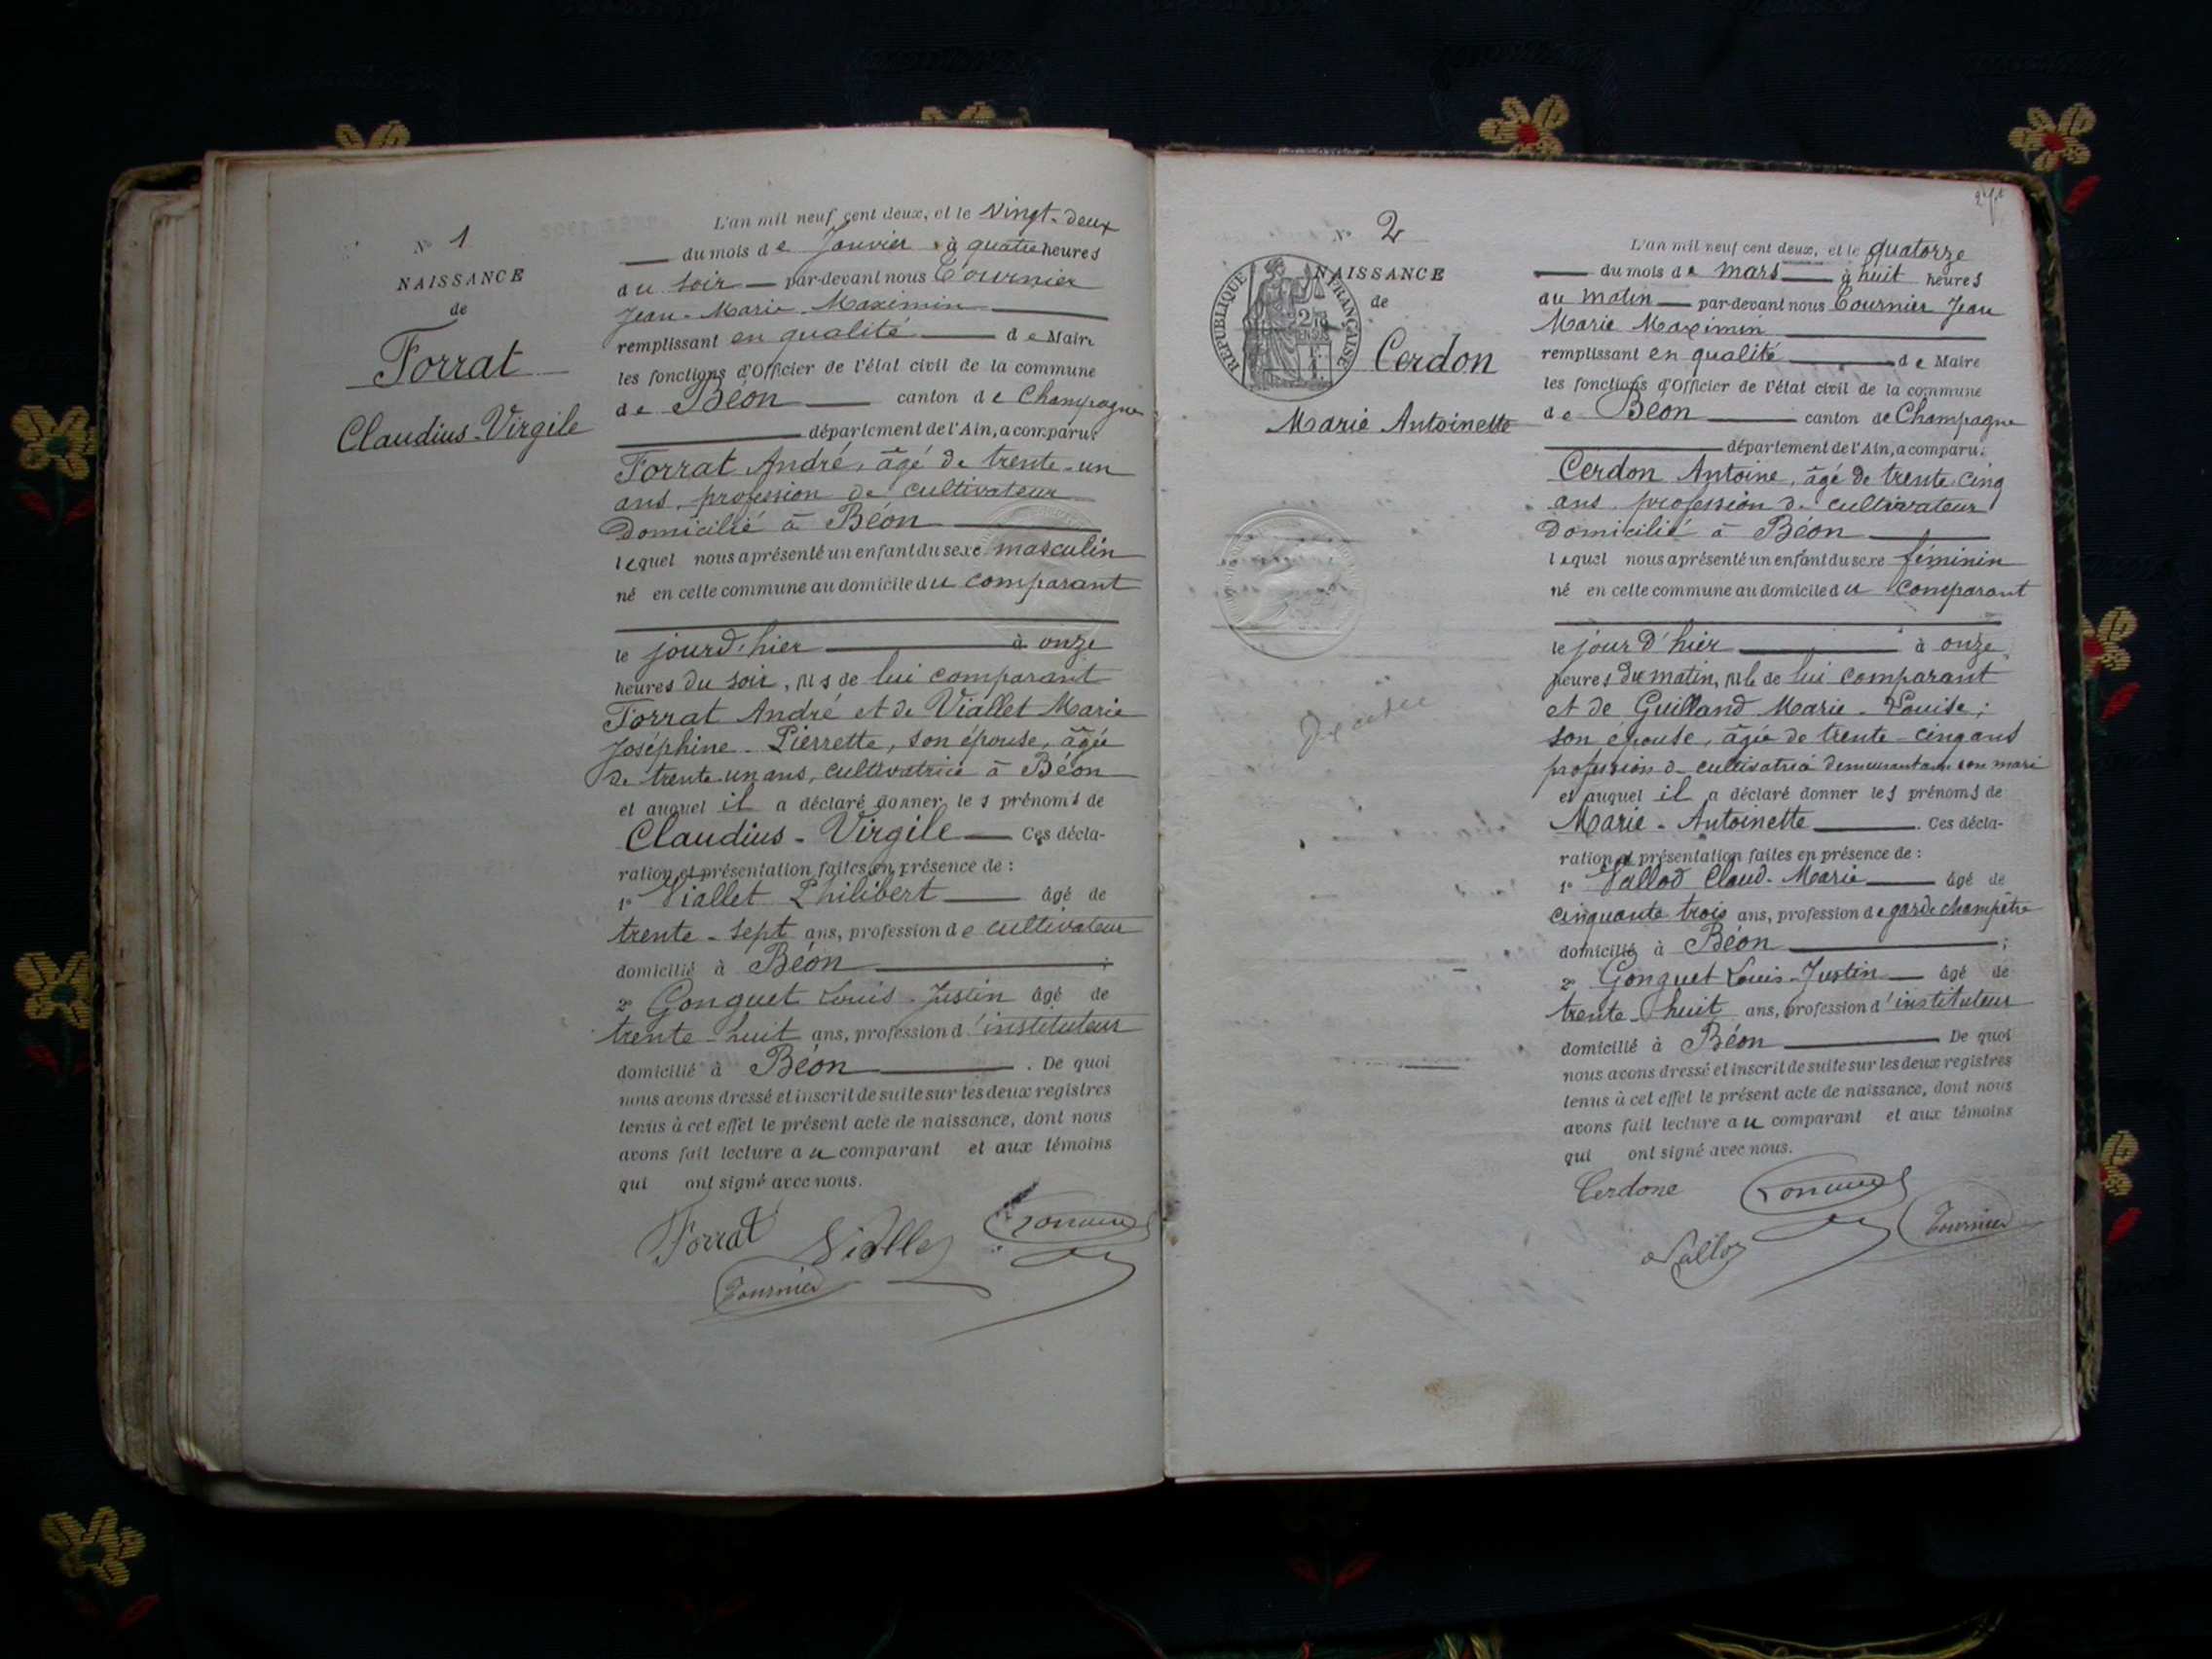 N° 1
NAISSANCE
de
Forrat
Claudius-Virgile
L'an mil neuf cent deux, et le vingt-deux
du mois de Janvier à quatre heures
du soir par-devant nous Tournier
Jean-Marie Maximin
remplissant en qualité de Maire
les fonctions d'Officier de l'état civil de la commune
de Béon canton de Champagne
département de l'Ain, a comparu:
Forrat André, âgé de trente-un
ans, profession de cultivateur
domicilié à Béon
lequel nous a présenté un enfant du sexe masculin
né en cette commune au domicile du comparant
le jourd'hier à onze
heures du soir, fils de lui comparant
Forrat André et de Viallet Marie
Joséphine-Pierrette, son épouse, âgée
de trente-un ans, cultivatrice à Béon
et auquel il a déclaré donner les prénoms de
Claudius-Virgile Ces décla-
ration et présentation faites en présence de :
1° Viallet Philibert âgé de
trente-sept ans, profession de cultivateur
domicilié à Béon ;
2° Gonguet Louis-Justin âgé de
trente-huit ans, profession d'instituteur
domicilié à Béon . De quoi
nous avons dressé et inscrit de suite sur les deux registres
tenus à cet effet le présent acte de naissance, dont nous
avons fait lecture au comparant et aux témoins
qui ont signé avec nous.
Forrat
Tournier
N° 2
NAISSANCE
de
RÉPUBLIQUE FRANÇAISE
Cerdon
Marie Antoinette
L'an mil neuf cent deux, et le quatorze
du mois de mars à huit heures
du matin par-devant nous Tournier Jean
Marie Maximin
remplissant en qualité de Maire
les fonctions d'Officier de l'état civil de la commune
de Béon canton de Champagne
département de l'Ain, a comparu:
Cerdon Antoine, âgé de trente-cinq
ans, profession de cultivateur
domicilié à Béon
lequel nous a présenté un enfant du sexe féminin
né en cette commune au domicile du comparant
le jourd'hier à onze
heures du matin, fille de lui comparant
et de Guilland Marie-Louise;
son épouse, âgée de trente-cinq ans
profession de cultivatrice demeurant avec son mari
et auquel il a déclaré donner les prénoms de
Marie-Antoinette . Ces décla-
ration et présentation faites en présence de :
1° Vallod Claud-Marie âgé de
cinquante trois ans, profession de garde champêtre
domicilié à Béon ;
2° Gonguet Louis-Justin âgé de
trente-huit ans, profession d'instituteur
domicilié à Béon De quoi
nous avons dressé et inscrit de suite sur les deux registres
tenus à cet effet le présent acte de naissance, dont nous
avons fait lecture au comparant et aux témoins
qui ont signé avec nous.
Cerdone
Tournier